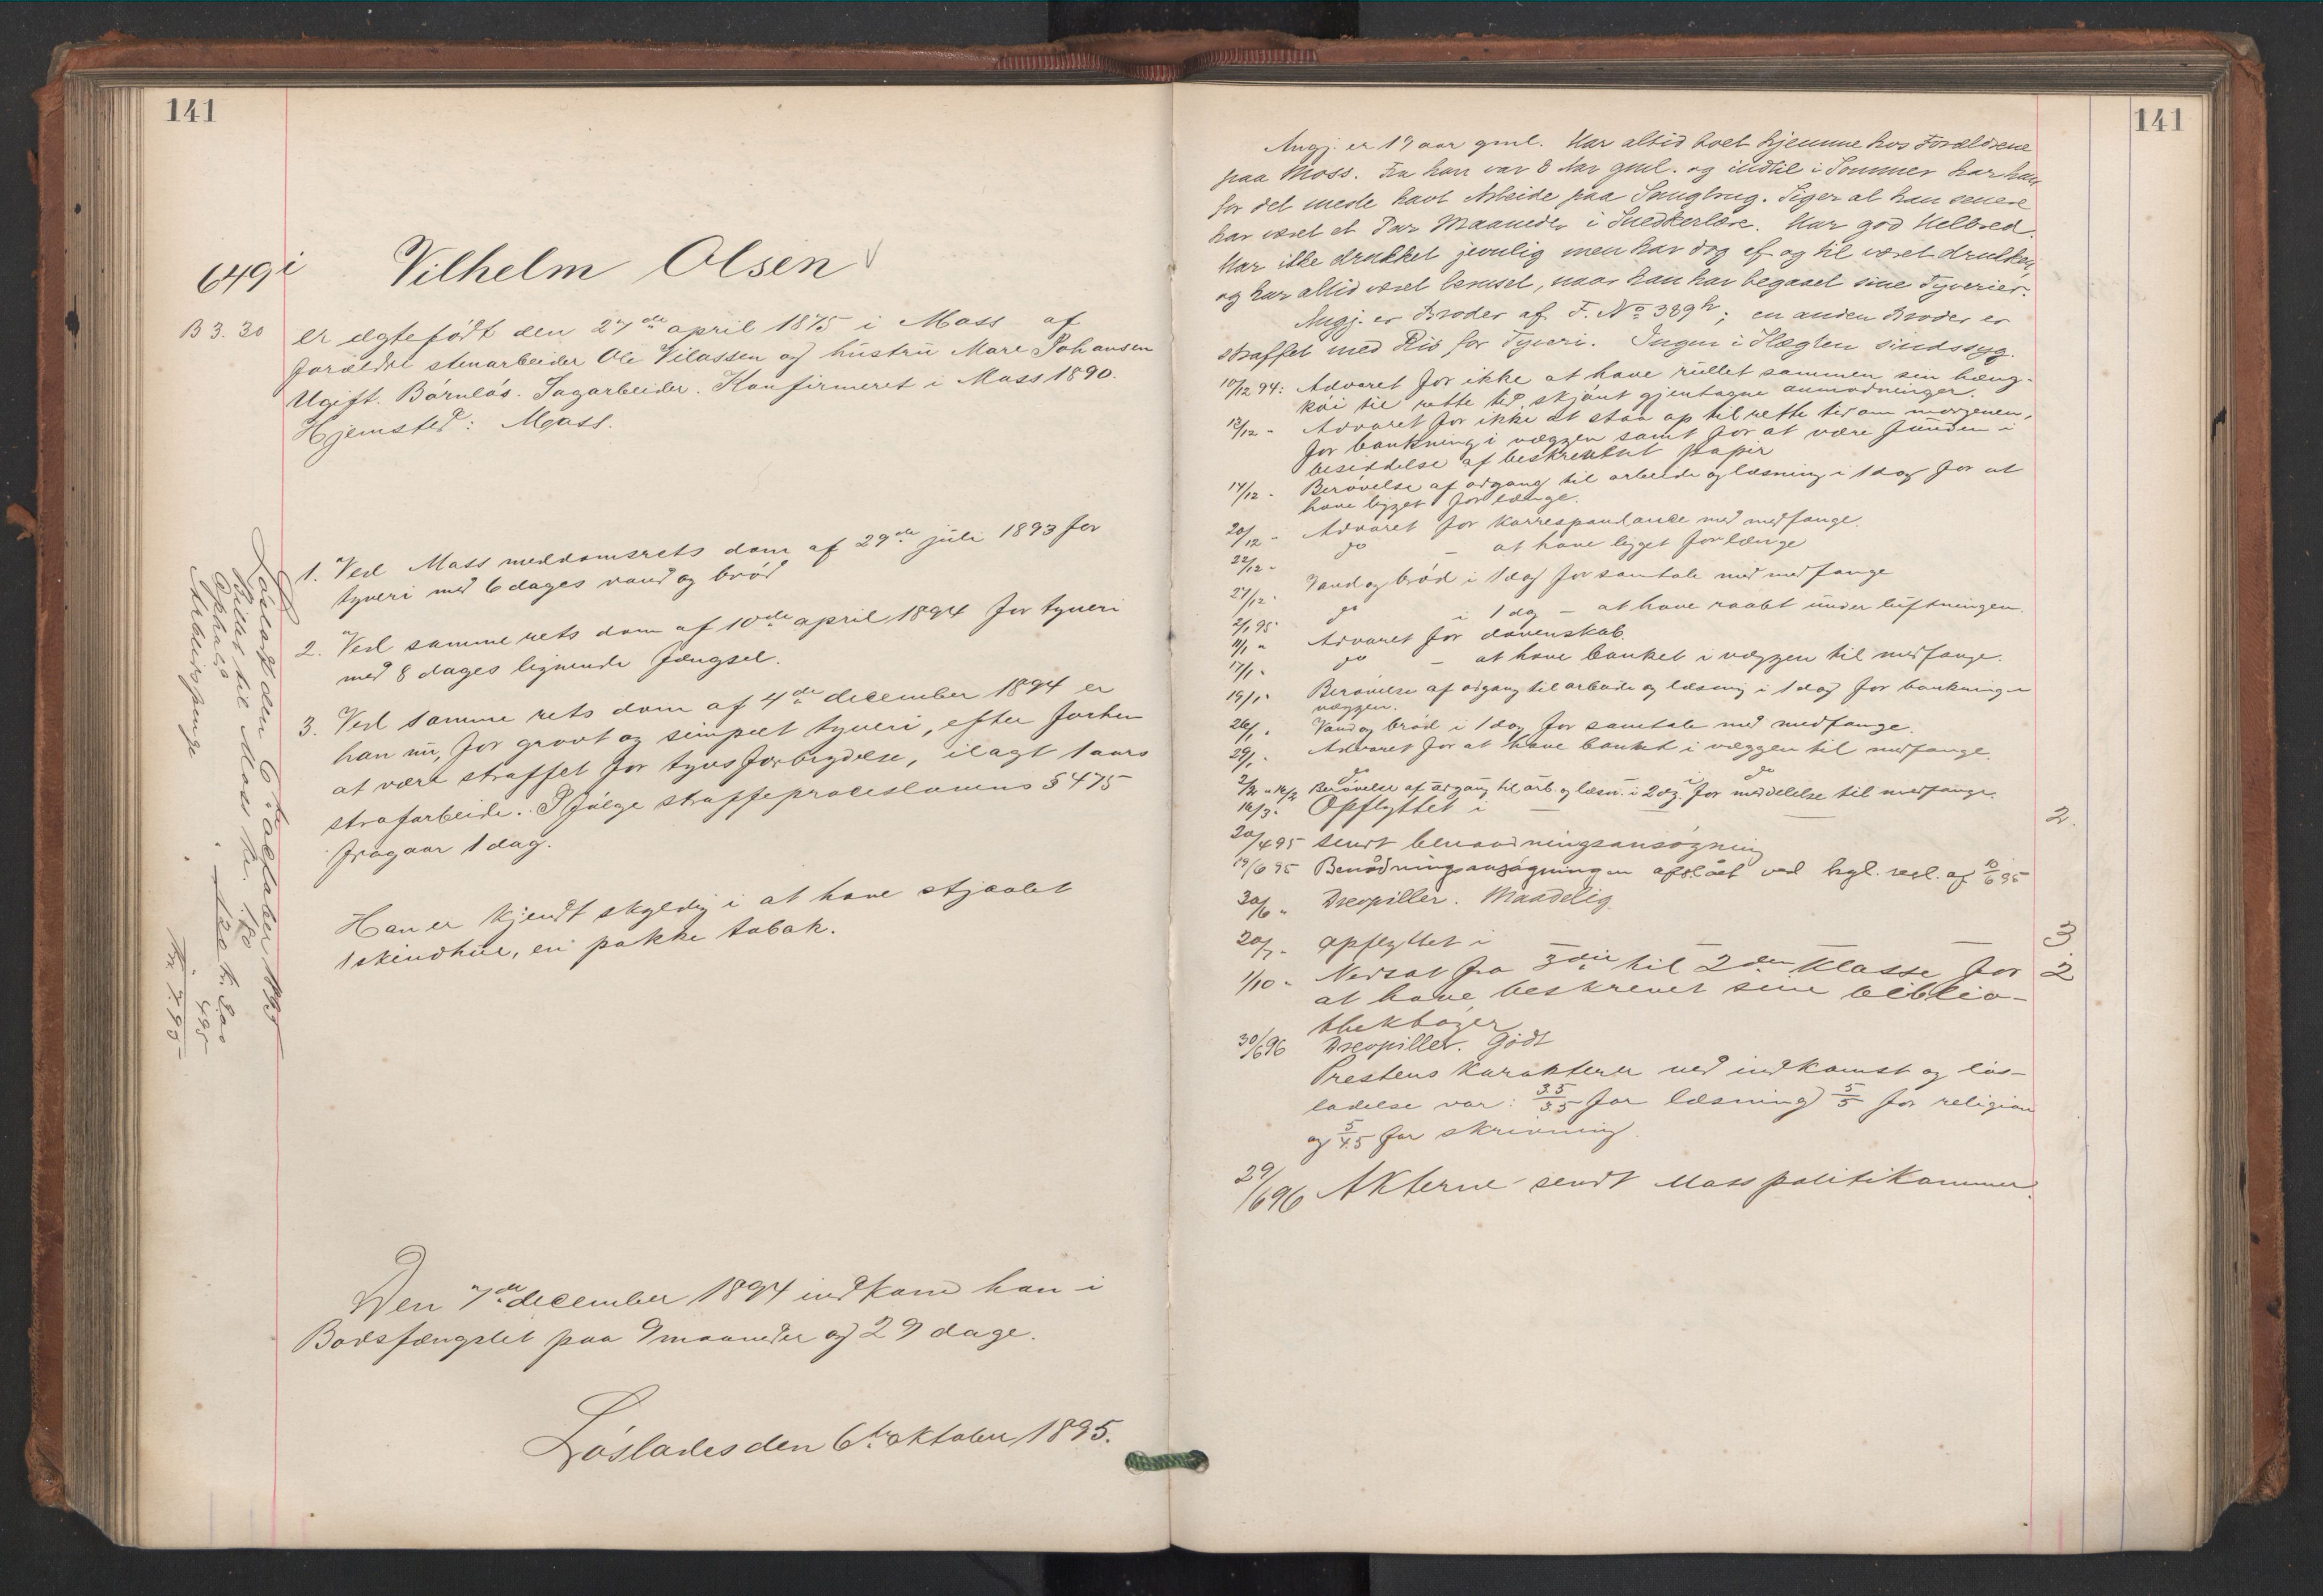 141
649 i Vilhelm Olsen
B 3. 30 er ægtefödt den 27de april 1875 i Moss af
forældre stenarbeider Ole Vilassen og hustru Mare Johansen
Ugift. Börnlös. Sagarbeider. Konfirmeret i Moss 1890.
Hjemsted: Moss.
1. Ved Moss meddomsrets dom af 29de juli 1893 for
tyveri med 6 dages vand og bröd
2. Ved samme rets dom af 10de april 1894 for tyveri
med 8 dages lignende fængsel.
3. Ved samme rets dom af 4de december 1894 er
han nu, for grovt og simpelt tyveri, efter forhen
at være straffet for tyvsforbrydelse, ilagt 1 aars
strafarbeide. I fölge straffeproceslovens § 475
fragaar 1 dag.
Han er kjendt skyldig i at have stjaalet
1 skindhue, en pakke tobak.
Den 7de december 1894 indkom han i
Bodsfængslet paa 9 maaneder og 29 dage.
Löslades den 6te oktober 1895.
Lösladt den 6te oktober 1895
Billet til Moss kr. 1.80
Ophold
Arbeidspenge
141
Angj. er 19 aar gml. Har altid boet hjemme hos Forældrene
paa Moss. Fra han var 8 Aar gml. og indtil i Sommer har han
for det meste havt Arbeide paa Sagbrug. Siger at han senere
har været et Par Maaneder i Snedkerlære. Har god Helbred.
Har ikke drukket jevnlig men har dog af og til været drukken,
og har altid været beruset, naar han har begaaet sine Tyverier.
Angj. er Broder af F. No 389 h; en anden Broder er
straffet med Ris for Tyveri. Ingen i Slægten sindssyg.
10/12 94: Advaret for ikke at have rullet sammen sin hænge-
köi til rette tid, skjönt gjentagne anmodninger.
12/12 " Advaret for ikke at staa op til rette tid om morgenen,
for bankning i væggen samt for at være funden i
besiddelse af beskrevet papir
14/12 - Berövelse af adgang til arbeide og læsning i 1 dag for at
have ligget for længe.
20/12 - Advaret for korrespondance med medfange.
22/12 - do - at have ligget for længe
27/12 - Vand og bröd i 1 dag for samtale med medfange
2/1 95 do i 1 dag - at have raabt under luftningen.
11/1 " Advaret for dovenskab.
17/1 - do - at have banket i væggen til medfange.
19/1 " Berövelse af adgang til arbeide og læsning i 1 dag for bankning i
væggen.
26/1 " Vand og bröd i 1 dag for samtale med medfange.
29/1 - Advaret for at have banket i væggen til medfange.
do do
Berövelse af adgang til arb. og læsn. i 2 dg. for meddelelse til medfange.
16/3 - Opflyttet i — — — 2.
20/4 95 sendt benaadningsansögning
19/6 95 Benådningsansögningen afslået ved kgl. resl. af 10/6 95
30/6 " Maadelig.
20/7 - opflyttet i — — — 3
1/10 " Nedsat fra 3die til 2den Klasse for 2
at have beskrevet sine biblio-
thekböger
30/6 96 Godt
Prestens karakterer ved indkomst og lös-
ladelse var: 3.5/3.5 for læsning 5/5 for religion
og 5/4.5 for skrivning.
29/6 96 Akterne sendt Moss politikammer.